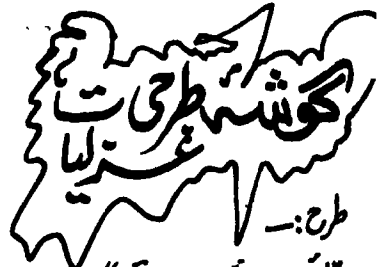 گوشۂ طرحی
غزلیات
طرح:—